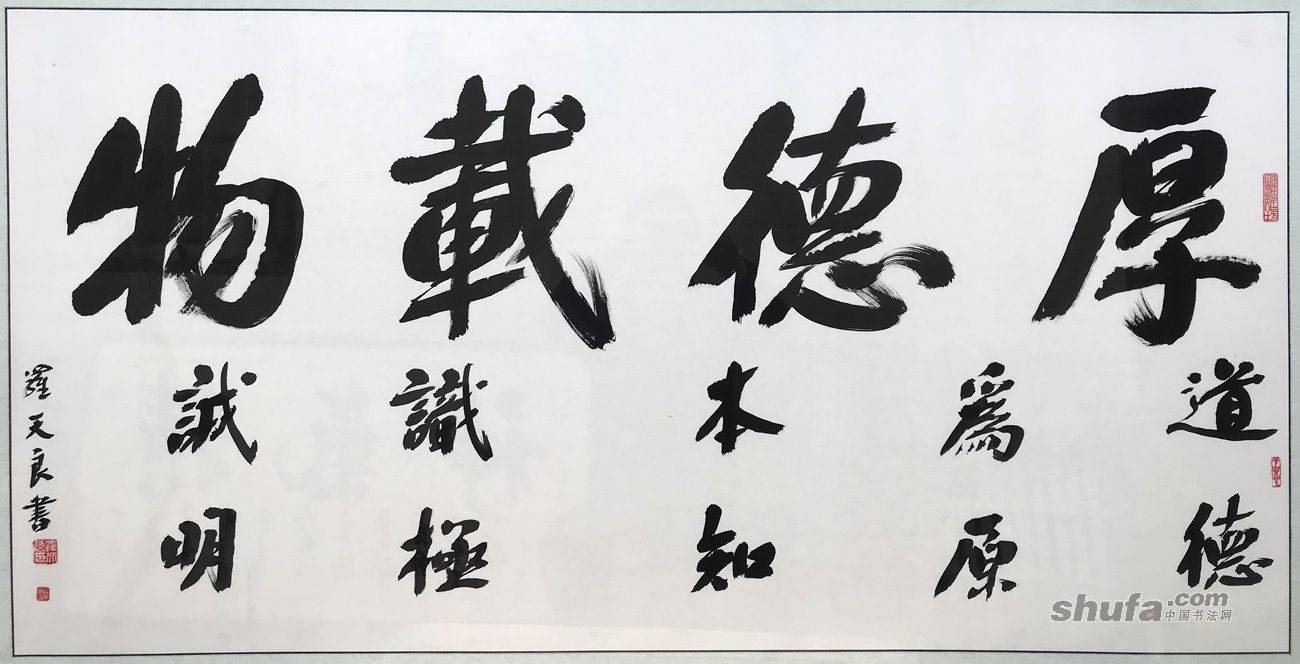 厚德載物
道德
爲原
本知
識極
誠明
羅天良書
shufa.com
中国书法网